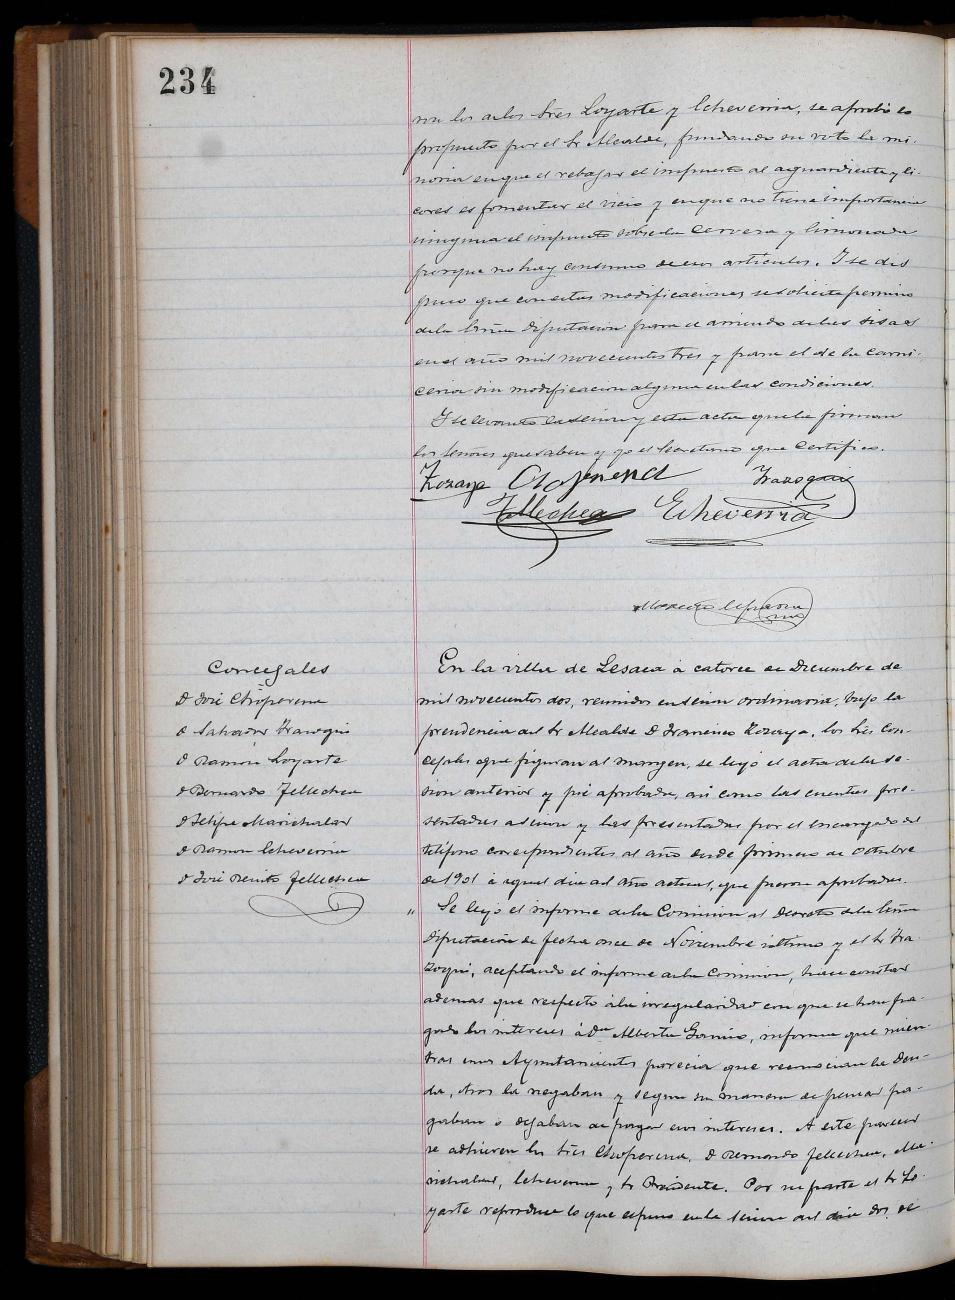 234
con los de los Sres Loyarte y Echeverria, se aprobó lo
propuesto por el Sr Alcalde, fundando su voto la mi-
noria en que el rebajar el impuesto al aguardiente y li-
cores es fomentar el vicio y en que no tiene importancia
ninguna el impuesto sobre la cerveza y limonada
porque no hay consumo de esos articulos. Y se dis
puso que con estas modificaciones se solicite permiso
de la Excma Diputacion para el arriendo de las sisas
en el año mil novecientos tres y para el de la carni-
ceria sin modificacion alguna en las condiciones.
Y se levantó la sesion y esta acta que la firman
los señores que saben y yo el Secretario que certifico.
Zozaya Choperena Irazoqui
Tellechea Echeverria
Concejales
D José Choperena
D Salvador Irazoqui
D Ramon Loyarte
D Bernardo Tellechea
D Felipe Marichalar
D Ramon Echeverria
D José Benito Tellechea
En la villa de Lesaca á catorce de Diciembre de
mil novecientos dos, reunidos en sesion ordinaria, bajo la
presidencia del Sr Alcalde D Francisco Zozaya, los Sres Con-
cejales que figuran al margen, se leyó el acta de la se-
sion anterior y fué aprobada, asi como las cuentas pre-
sentadas a sesion y las presentadas por el encargado del
teléfono correspondientes al año desde primero de Octubre
de 1901 á igual dia del año actual, que fueron aprobadas.
" Se leyó el informe de la Comision al decreto de la Excma
Diputación de fecha once de Noviembre último y el Sr Ira-
zoqui, aceptando el informe de la Comision, hace constar
ademas que respecto á la irregularidad con que se han pa-
gado los intereses á Dª Alberta informa que mien-
tras unos Ayuntamientos parecia que reconocian la Deu-
da, otros la negaban y segun su manera de pensar pa-
gaban ó dejaban de pagar esos intereses. A este parecer
se adhieren los Sres Choperena, D Bernardo Tellechea, Ma-
richalar, Echeverria y Sr Presidente. Por su parte el Sr Lo-
yarte reproduce lo que expuso en la sesion del dia dos de